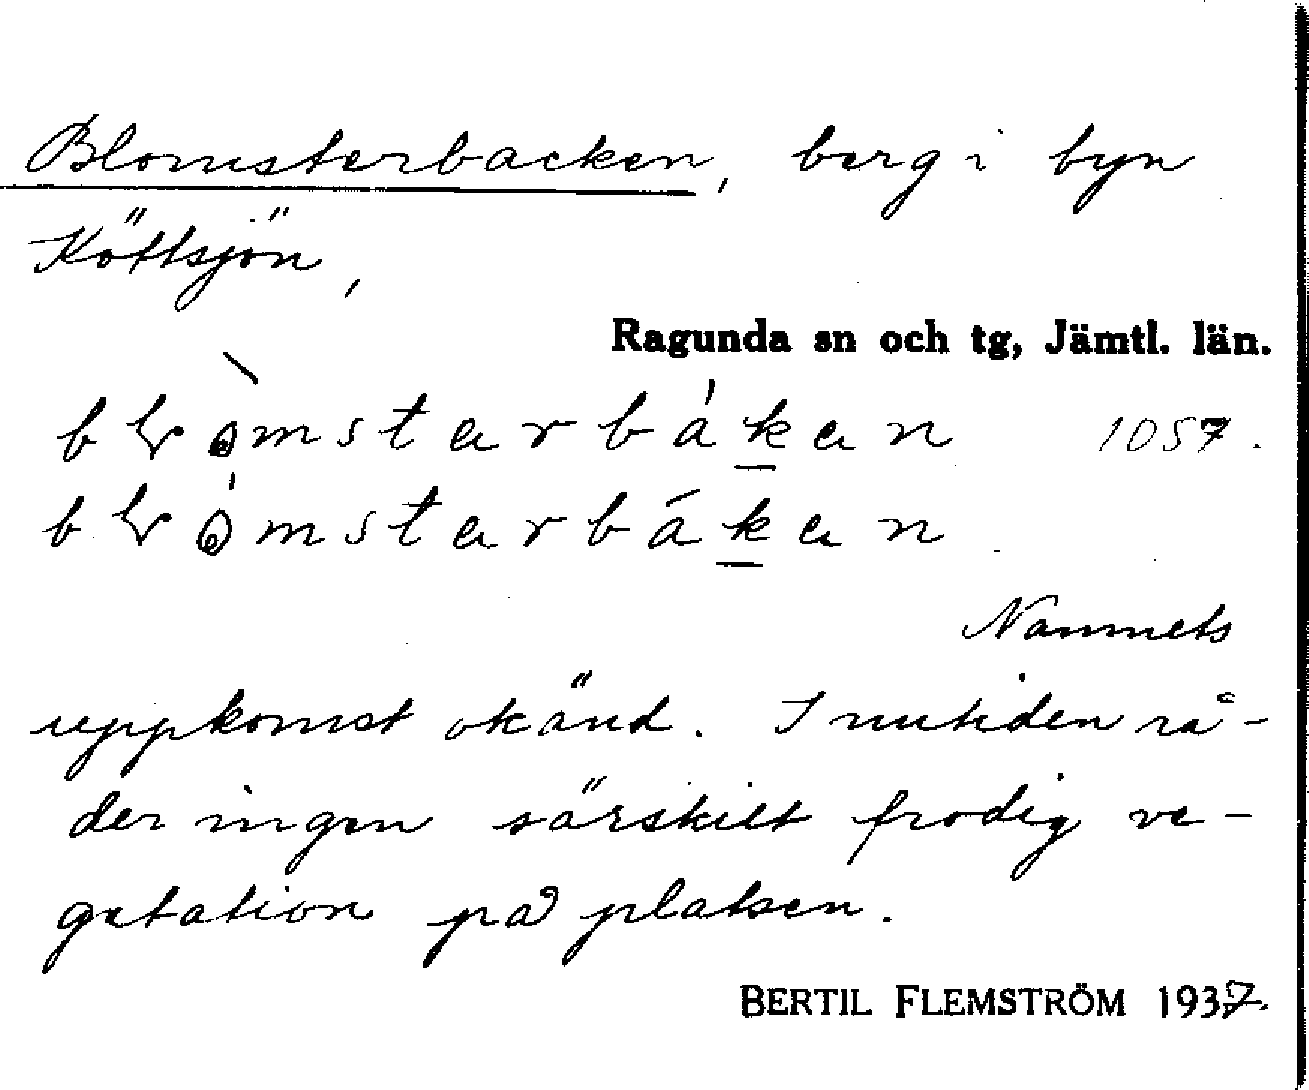 Blomsterbacken, berg i byn
Köttsjön,
Ragunda sn och tg, Jämtl. län.
1057.
Namnets
uppkomst okänd. I nutiden rå-
der ingen särskilt frodig ve-
getation på platsen.
BERTIL FLEMSTRÖM 1937.